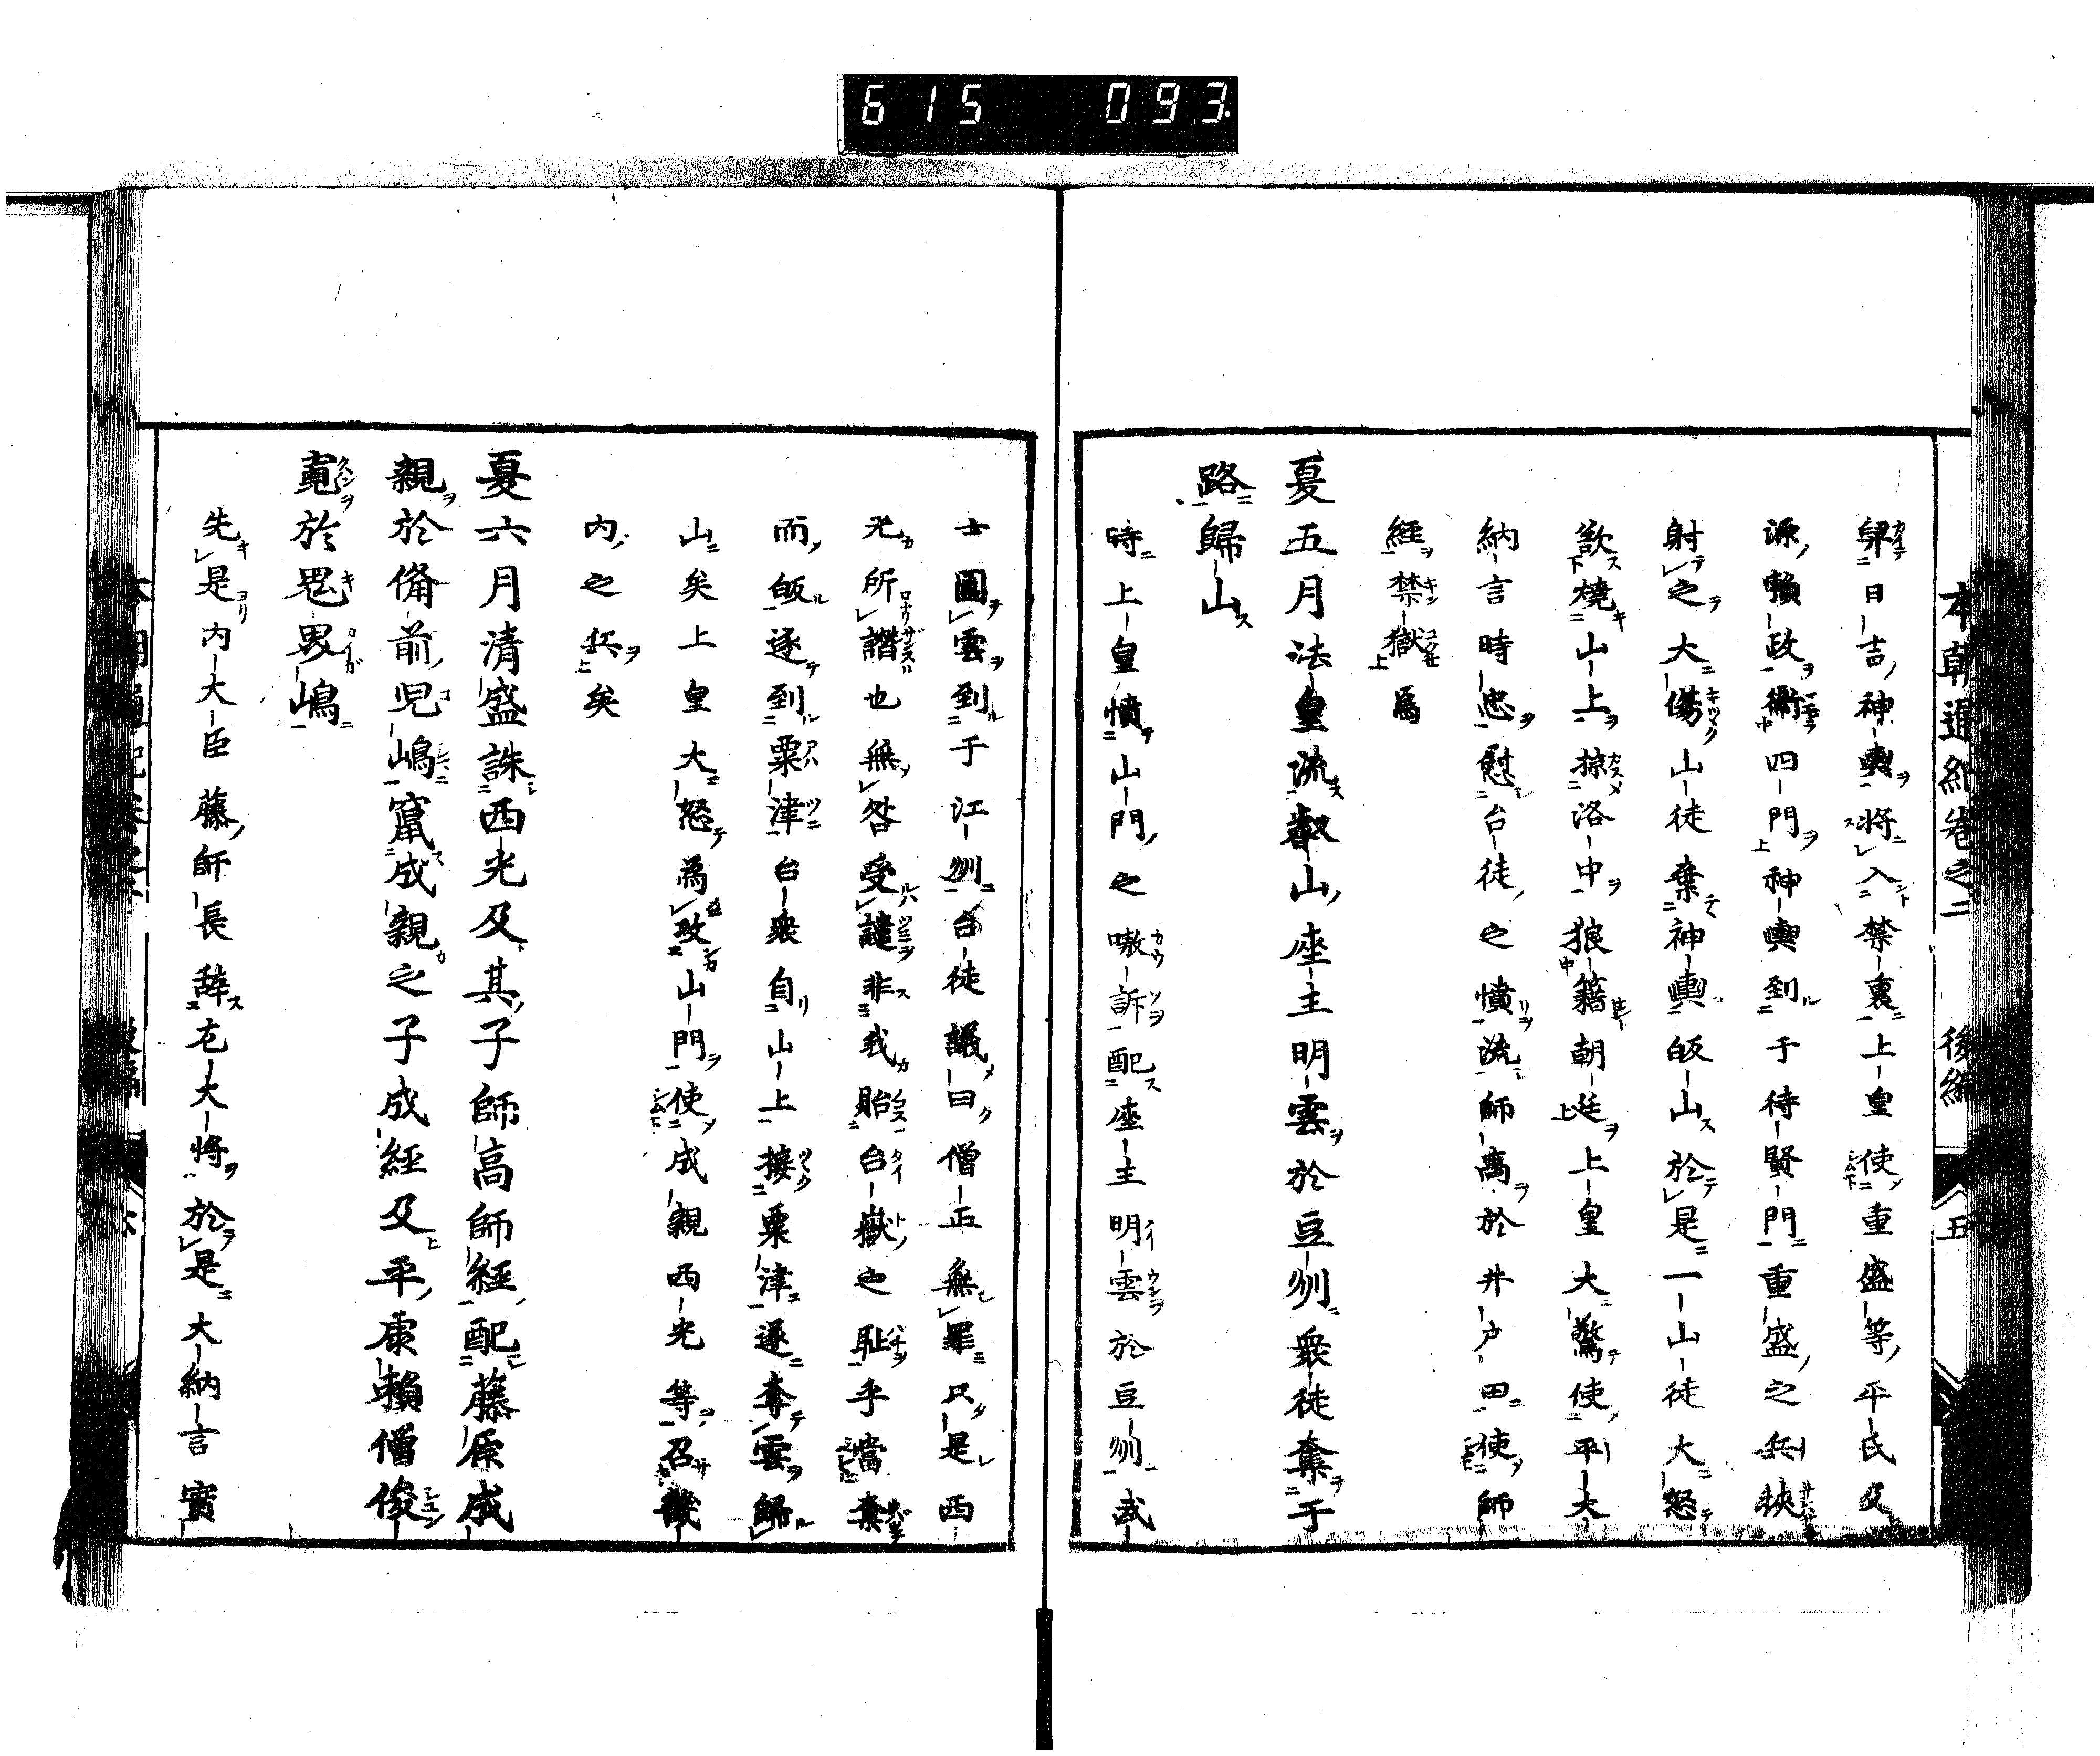 615 093
本朝通紀卷之二 後編 五
舁日吉神輿將入禁裏上皇使重盛等平氏及
源頼政衞四門神輿到于待賢門重盛之兵挾
射之大傷山徒棄神輿皈山於是一山徒大怒
欲燒山上掠洛中狼籍朝廷上皇大驚使平大
納言時忠慰台徒之憤流師高於井戸田使師
經禁獄焉
夏五月法皇流叡山座主明雲於豆州衆徒奪于
路歸山
時上皇憤山門之嗷訴配座主明雲於豆州武
士圍雲到于江州台徒議曰僧正無罪只是西
光所譖也無咎受譴非我貽台嶽之耻乎當奪
而皈遂到粟津台衆自山上接粟津遂奪雲歸
山矣上皇大怒爲攻山門使成親西光等召畿
内之兵矣
夏六月清盛誅西光及其子師高師經配藤原成
親於備前児嶋竄成親之子成経及平康頼僧俊
寛於鬼界嶋
先是内大臣藤師長辞左大将於是大納言實